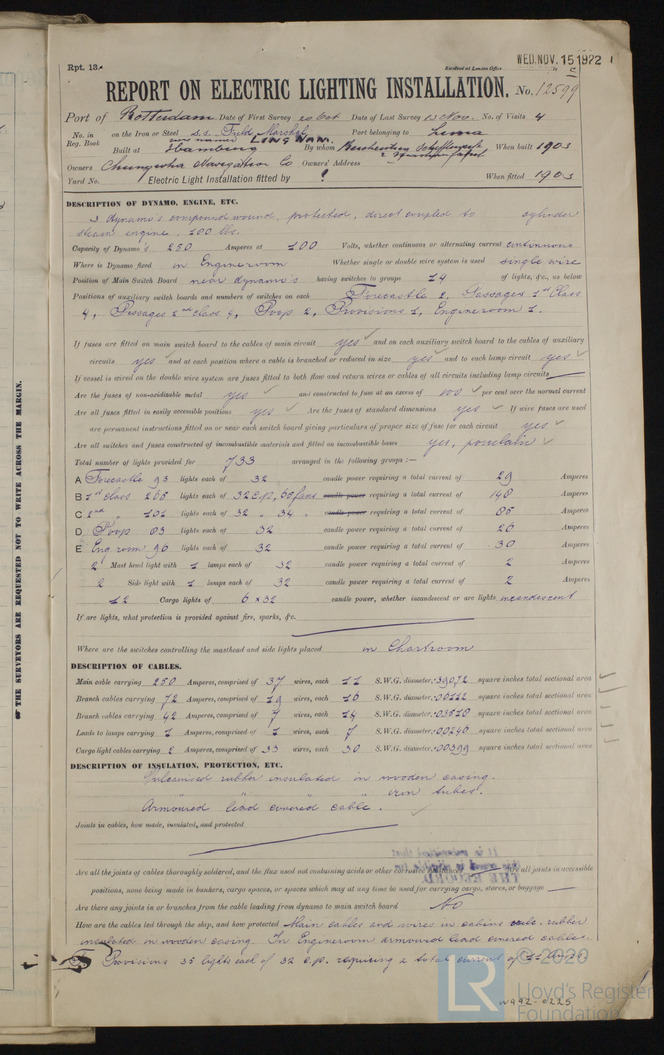 Rpt. 13.
Received at London Office
WED. NOV. 15 1922
REPORT ON ELECTRIC LIGHTING INSTALLATION. No. 12599
Port of Rotterdam Date of First Survey 20 Oct Date of Last Survey 13 Nov. No. of Visits 4
No. in Reg. Book on the Iron or Steel S.S. Field Marshal Port belonging to Lima
now named LING NAM.
Built at Hamburg By whom When built 1903
Owners Navigation Co Owners' Address
Yard No. Electric Light Installation fitted by ? When fitted 1903
DESCRIPTION OF DYNAMO, ENGINE, ETC.
3 dynamo's compound wound, protected, direct coupled to cylinder
steam engine, 100 lbs.
Capacity of Dynamo's 250 Amperes at 100 Volts, whether continuous or alternating current continuous
Where is Dynamo fixed in Engineroom Whether single or double wire system is used single wire
Position of Main Switch Board near dynamo's having switches to groups 14 of lights, &c., as below
Positions of auxiliary switch boards and numbers of switches on each Forecastle 2, Passages 1st Class
4, Passages 2nd class 4, Poop 2, Provisions 1, Engineroom 1.
If fuses are fitted on main switch board to the cables of main circuit yes and on each auxiliary switch board to the cables of auxiliary
circuits yes and at each position where a cable is branched or reduced in size yes and to each lamp circuit yes
If vessel is wired on the double wire system are fuses fitted to both flow and return wires or cables of all circuits including lamp circuits
Are the fuses of non-oxidizable metal yes and constructed to fuse at an excess of 100 per cent over the normal current
Are all fuses fitted in easily accessible positions yes Are the fuses of standard dimensions yes If wire fuses are used
are permanent instructions fitted on or near each switch board giving particulars of proper size of fuse for each circuit yes
Are all switches and fuses constructed of incombustible materials and fitted on incombustible bases yes, porcelain
Total number of lights provided for 733 arranged in the following groups :—
A Forecastle 93 lights each of 32 candle power requiring a total current of 29 Amperes
B 1st class 268 lights each of 32 c.p., 60 fans candle power requiring a total current of 148 Amperes
C 2nd " 101 lights each of 32 " 34 " candle power requiring a total current of 65 Amperes
D Poop 83 lights each of 32 candle power requiring a total current of 26 Amperes
E Eng room 96 lights each of 32 candle power requiring a total current of 30 Amperes
2 Mast head light with 1 lamps each of 32 candle power requiring a total current of 2 Amperes
2 Side light with 1 lamps each of 32 candle power requiring a total current of 2 Amperes
12 Cargo lights of 6 x 32 candle power, whether incandescent or arc lights incandescent
If arc lights, what protection is provided against fire, sparks, &c.
Where are the switches controlling the masthead and side lights placed in Chartroom
DESCRIPTION OF CABLES.
Main cable carrying 250 Amperes, comprised of 37 wires, each 11 S.W.G. diameter, .39072 square inches total sectional area
Branch cables carrying 72 Amperes, comprised of 19 wires, each 16 S.W.G. diameter, .06112 square inches total sectional area
Branch cables carrying 42 Amperes, comprised of 7 wires, each 14 S.W.G. diameter, .03518 square inches total sectional area
Leads to lamps carrying 1 Amperes, comprised of 1 wires, each 7 S.W.G. diameter, .00240 square inches total sectional area
Cargo light cables carrying 2 Amperes, comprised of 33 wires, each 30 S.W.G. diameter, .00399 square inches total sectional area
DESCRIPTION OF INSULATION, PROTECTION, ETC.
Vulcanised rubber insulated in wooden casing.
" " " " iron tubes.
Armoured lead covered cable.
Joints in cables, how made, insulated, and protected
Are all the joints of cables thoroughly soldered, and the flux used not containing acids or other corrosive substances Are all joints in accessible
positions, none being made in bunkers, cargo spaces, or spaces which may at any time be used for carrying cargo, stores, or baggage
Are there any joints in or branches from the cable leading from dynamo to main switch board No
How are the cables led through the ship, and how protected Main cables and wires in cabins vulc. rubber
insulated in wooden casing. In Engineroom armoured lead covered cables.
Provisions 35 lights each of 32 c.p. requiring a total current of 11 Amps.
OF THE SURVEYORS ARE REQUESTED NOT TO WRITE ACROSS THE MARGIN.
© 2020
LR
Lloyd's Register
Foundation
W992-0225